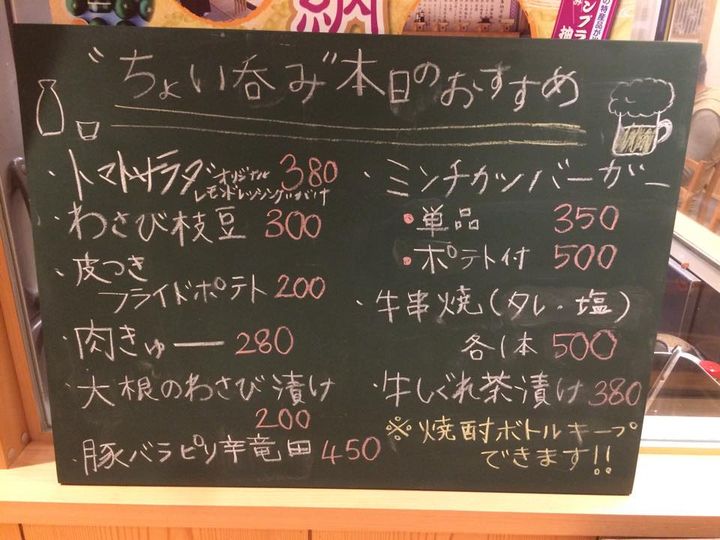 "ちょい呑み"本日のおすすめ
・トマトサラダ オリジナル レモンドレッシングがけ 380
・わさび枝豆 300
・皮つき
フライドポテト 200
・肉きゅー 280
・大根のわさび漬け
200
・豚バラピリ辛竜田 450
・ミンチカツバーガー
・単品 350
・ポテト付 500
・牛串焼(タレ・塩)
各1本 500
・牛しぐれ茶漬け 380
※焼酎ボトルキープ
できます!!